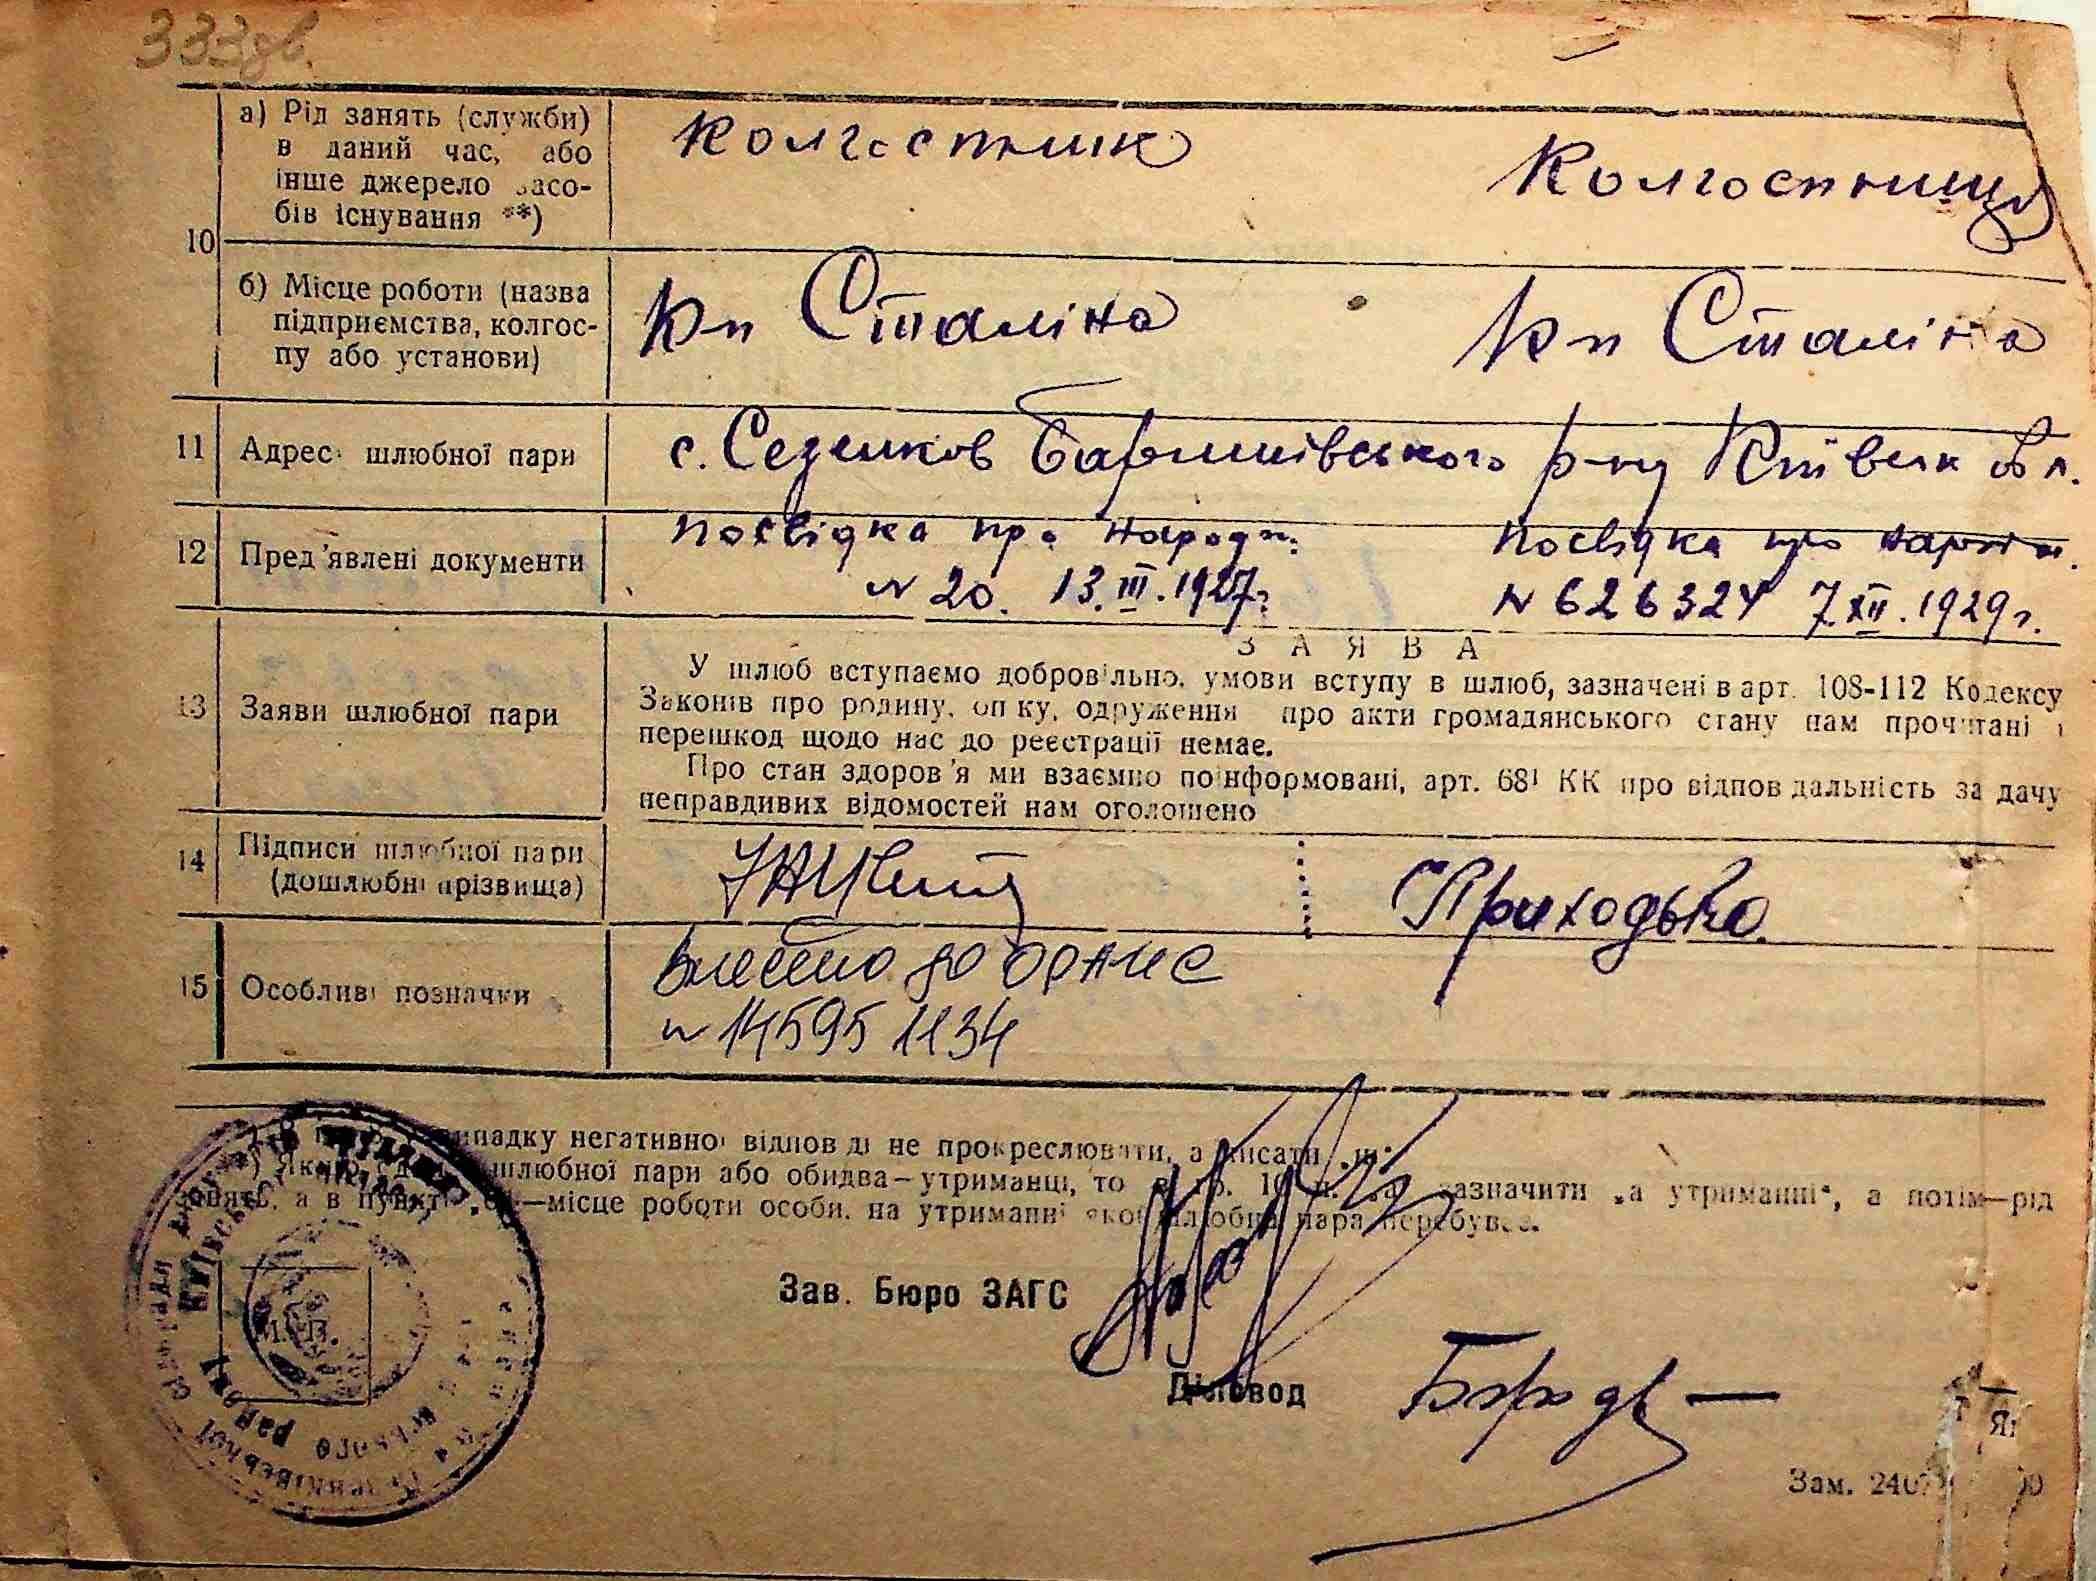 333зв.
а) Рід занять (служби)
в даний час, або
інше джерело засо-
бів існування **)
колгоспник
Колгоспниця
10
б) Місце роботи (назва
підприємства, колгос-
пу або установи)
Кп Сталіна
Кп Сталіна
11 Адреса шлюбної пари
с. Селешков Баришівського р-ну Київськ обл.
12 Пред'явлені документи
Посвідка про народж.
Посвідка про народж.
N 20. 13.III.1927 г.
N 626324 7.XII.1929 г.
ЗАЯВА
13 Заяви шлюбної пари
У шлюб вступаємо добровільно, умови вступу в шлюб, зазначені в арт. 108-112 Кодексу
Законів про родину, опіку, одруження про акти громадянського стану нам прочитані і
перешкод щодо нас до реєстрації немає.
Про стан здоров'я ми взаємно поінформовані, арт. 68¹ КК про відповідальність за дачу
неправдивих відомостей нам оголошено
14 Підписи шлюбної пари
(дошлюбні прізвища)
Приходько.
15 Особливі позначки
Внесено до ДРАЦС
N 14595 1134
випадку негативної відповіді не прокреслювати, а писати „ні"
Якщо шлюбної пари або обидва—утриманці, то зазначити „на утриманні", а потім—рід
занять, а в пункті —місце роботи особи, на утриманні якої шлюбна пара перебуває.
М. П.
Зав. Бюро ЗАГС
Діловод
Зам. 240